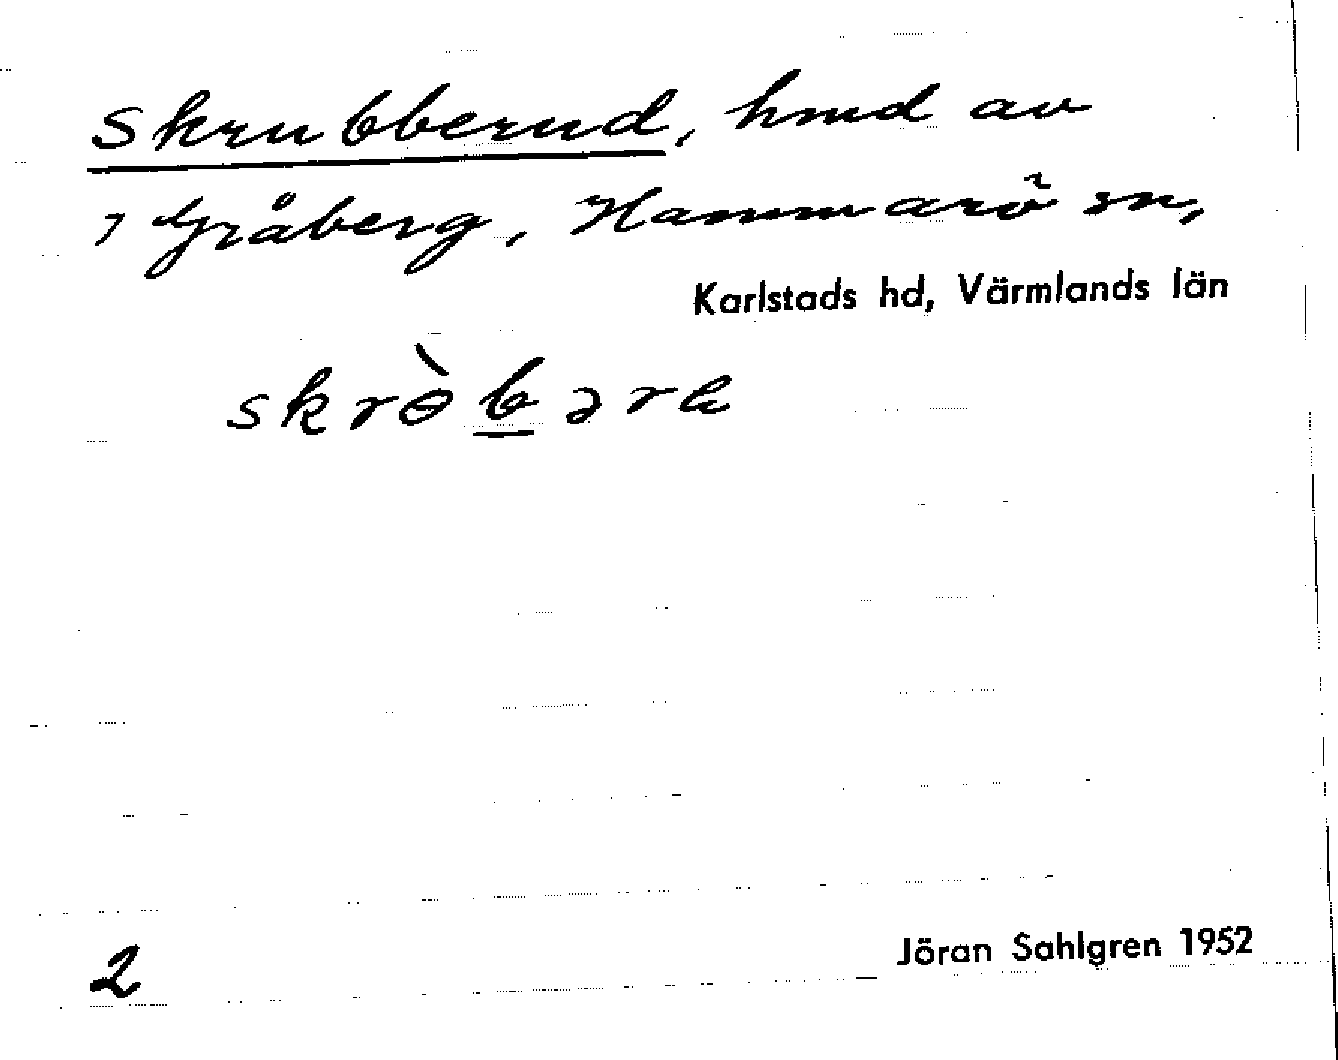 Skrubberud, hmd av
1 Gråberg, Hammarö sn,
Karlstads hd, Värmlands län
skrɵ̀b̲ərɵ
2
Jöran Sahlgren 1952